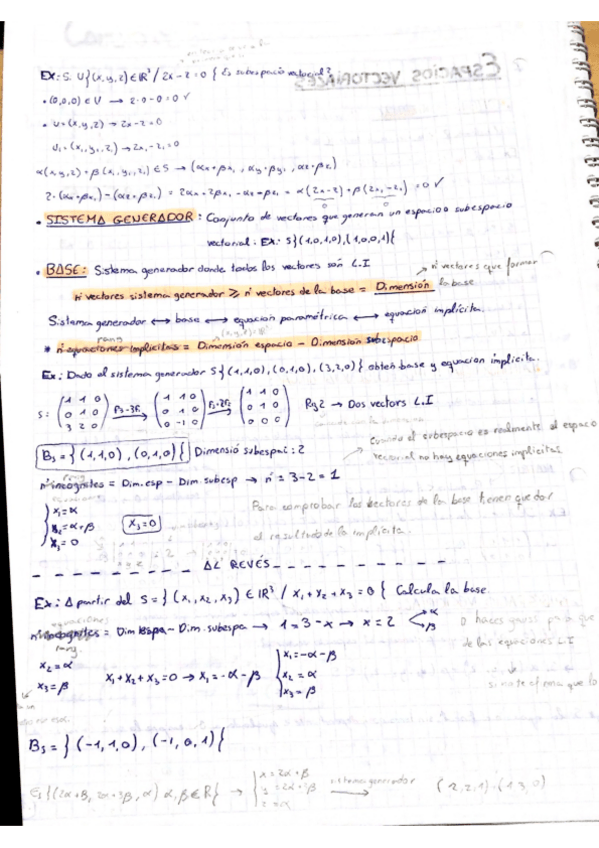 ESPACIOS VECTORIALES
Ex: S. U}(x,y,z) ∈ ℝ³ / 2x-z=0 { Es subespacio vectorial?
• (0,0,0) ∈ U → 2·0-0=0 ✓
• u=(x,y,z) → 2x-z=0
u₁=(x₁,y₁,z₁) → 2x₁-z₁=0
α(x,y,z)+β(x₁,y₁,z₁) ∈ S → (αx+βx₁, αy+βy₁, αz+βz₁)
2·(αx+βx₁)-(αz+βz₁) = 2αx+2βx₁-αz-βz₁ = α(2x-z)+β(2x₁-z₁)=0 ✓
0 0
• SISTEMA GENERADOR: Conjunto de vectores que generan un espacio o subespacio
vectorial: Ex: S}(1,0,1,0),(1,0,0,1){
• BASE: Sistema generador donde todos los vectores son L.I
→ nº vectores que forman la base
nº vectores sistema generador ≥ nº vectores de la base = Dimensión
Sistema generador ↔ base ↔ equacion paramétrica ↔ equacion implícita.
rang
* nº equaciones implicitas = Dimensión espacio - Dimension subespacio
Ex: Dado el sistema generador S}(1,1,0),(0,1,0),(3,2,0){ obtén base y equacion implicita.
S: (1 1 0 / 0 1 0 / 3 2 0) F₃-3F₁→ (1 1 0 / 0 1 0 / 0 -1 0) → (1 1 0 / 0 1 0 / 0 0 0) Rg2 → Dos vectors L.I
Bs = } (1,1,0), (0,1,0) { Dimensió subespai: 2
cuando el subespacio es realmente el espacio
vectorial no hay equaciones implicitas
rang
nº incognites = Dim. esp - Dim subesp → nº = 3-2 = 1
x₁=α
x₂=α+β
x₃=0
x₃=0
Para comprobar los vectores de la base tienen que dar
el resultado de la implícita.
AL REVÉS
Ex: A partir del S = } (x₁,x₂,x₃) ∈ ℝ³ / x₁+x₂+x₃=0 { Calcula la base.
equaciones
nº incognites = Dim espa - Dim. subespa → 1=3-x → x=2 α β
rang
O haces gauss para que
de las equaciones L.I
x₂=α
x₃=β
x₁+x₂+x₃=0 → x₁=-α-β
x₁=-α-β
x₂=α
x₃=β
Bs = } (-1,1,0), (-1,0,1) {
} (2α+β, 2α+3β, α) α,β ∈ ℝ { → x=2α+β
y=2α+3β
z=α
sistema generador → (2,2,1)·(1,3,0)